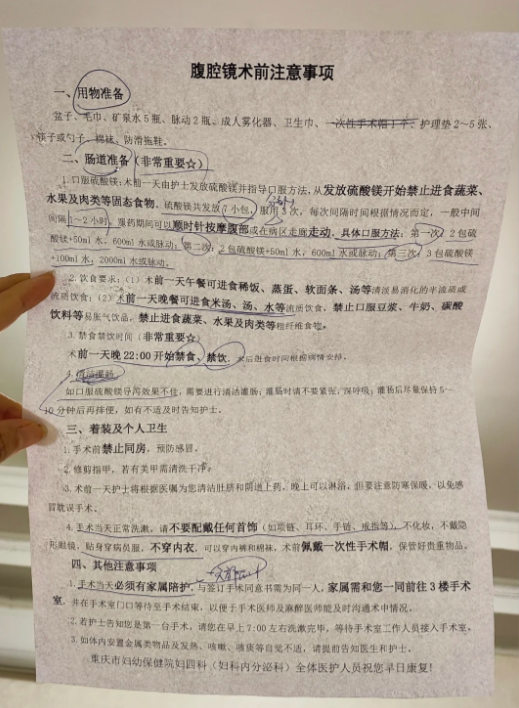 腹腔镜术前注意事项
一、用物准备
盆子、毛巾、矿泉水5瓶、脉动2瓶、成人雾化器、卫生巾、一次性手术帽1个、护理垫2~5张、
筷子或勺子、棉袜、防滑拖鞋。
二、肠道准备(非常重要☆)
1.口服硫酸镁:术前一天由护士发放硫酸镁并指导口服方法,从发放硫酸镁开始禁止进食蔬菜、
水果及肉类等固态食物。硫酸镁共发放7小包,服用3次,每次间隔时间根据情况而定,一般中间
间隔1~2小时,服药期间可以顺时针按摩腹部或在病区走廊走动。具体口服方法:第一次:2包硫
酸镁+50ml水、600ml水或脉动;第二次:2包硫酸镁+50ml水,600ml水或脉动;第三次:3包硫酸镁
+100ml水,2000ml水或脉动。
2.饮食要求:(1)术前一天午餐可进食稀饭、蒸蛋、软面条、汤等清淡易消化的半流质或
流质饮食;(2)术前一天晚餐可进食米汤、汤、水等流质饮食。禁止口服豆浆、牛奶、碳酸
饮料等易胀气饮品,禁止进食蔬菜、水果及肉类等粗纤维食物。
3.禁食禁饮时间(非常重要☆)
术前一天晚22:00开始禁食、禁饮,术后进食时间根据病情安排。
4.清洁灌肠
如口服硫酸镁导泻效果不佳,需要进行清洁灌肠;灌肠时请不要紧张,深呼吸;灌肠后尽量保持5~
10分钟后再排便,如有不适及时告知护士。
三、着装及个人卫生
1.手术前禁止同房,预防感冒。
2.修剪指甲,若有美甲需清洗干净。
3.术前一天护士将根据医嘱为您清洁肚脐和阴道上药,晚上可以淋浴,但要注意防寒保暖,以免感
冒耽误手术。
4.手术当天正常洗漱,请不要配戴任何首饰(如项链、耳环、手链、戒指等),不化妆,不戴隐
形眼镜,贴身穿病员服,不穿内衣,可以穿内裤和棉袜,术前佩戴一次性手术帽,保管好贵重物品。
四、其他注意事项
1.手术当天必须有家属陪护,与签订手术同意书需为同一人,家属需和您一同前往3楼手术
室,并在手术室门口等待至手术结束,以便于手术医师及麻醉医师能及时沟通术中情况。
2.若护士告知您是第一台手术,请您在早上7:00左右洗漱完毕,等待手术室工作人员接入手术室。
3.如体内安置金属类物品及发热、咳嗽、咳痰等自觉不适,请提前告知医生和护士。
重庆市妇幼保健院妇四科(妇科内分泌科)全体医护人员祝您早日康复!